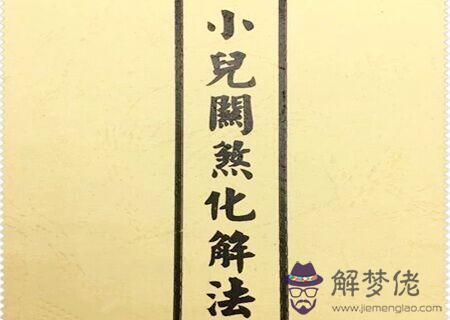 小兒關煞化解法
解梦佬
www.jiemenglao.com